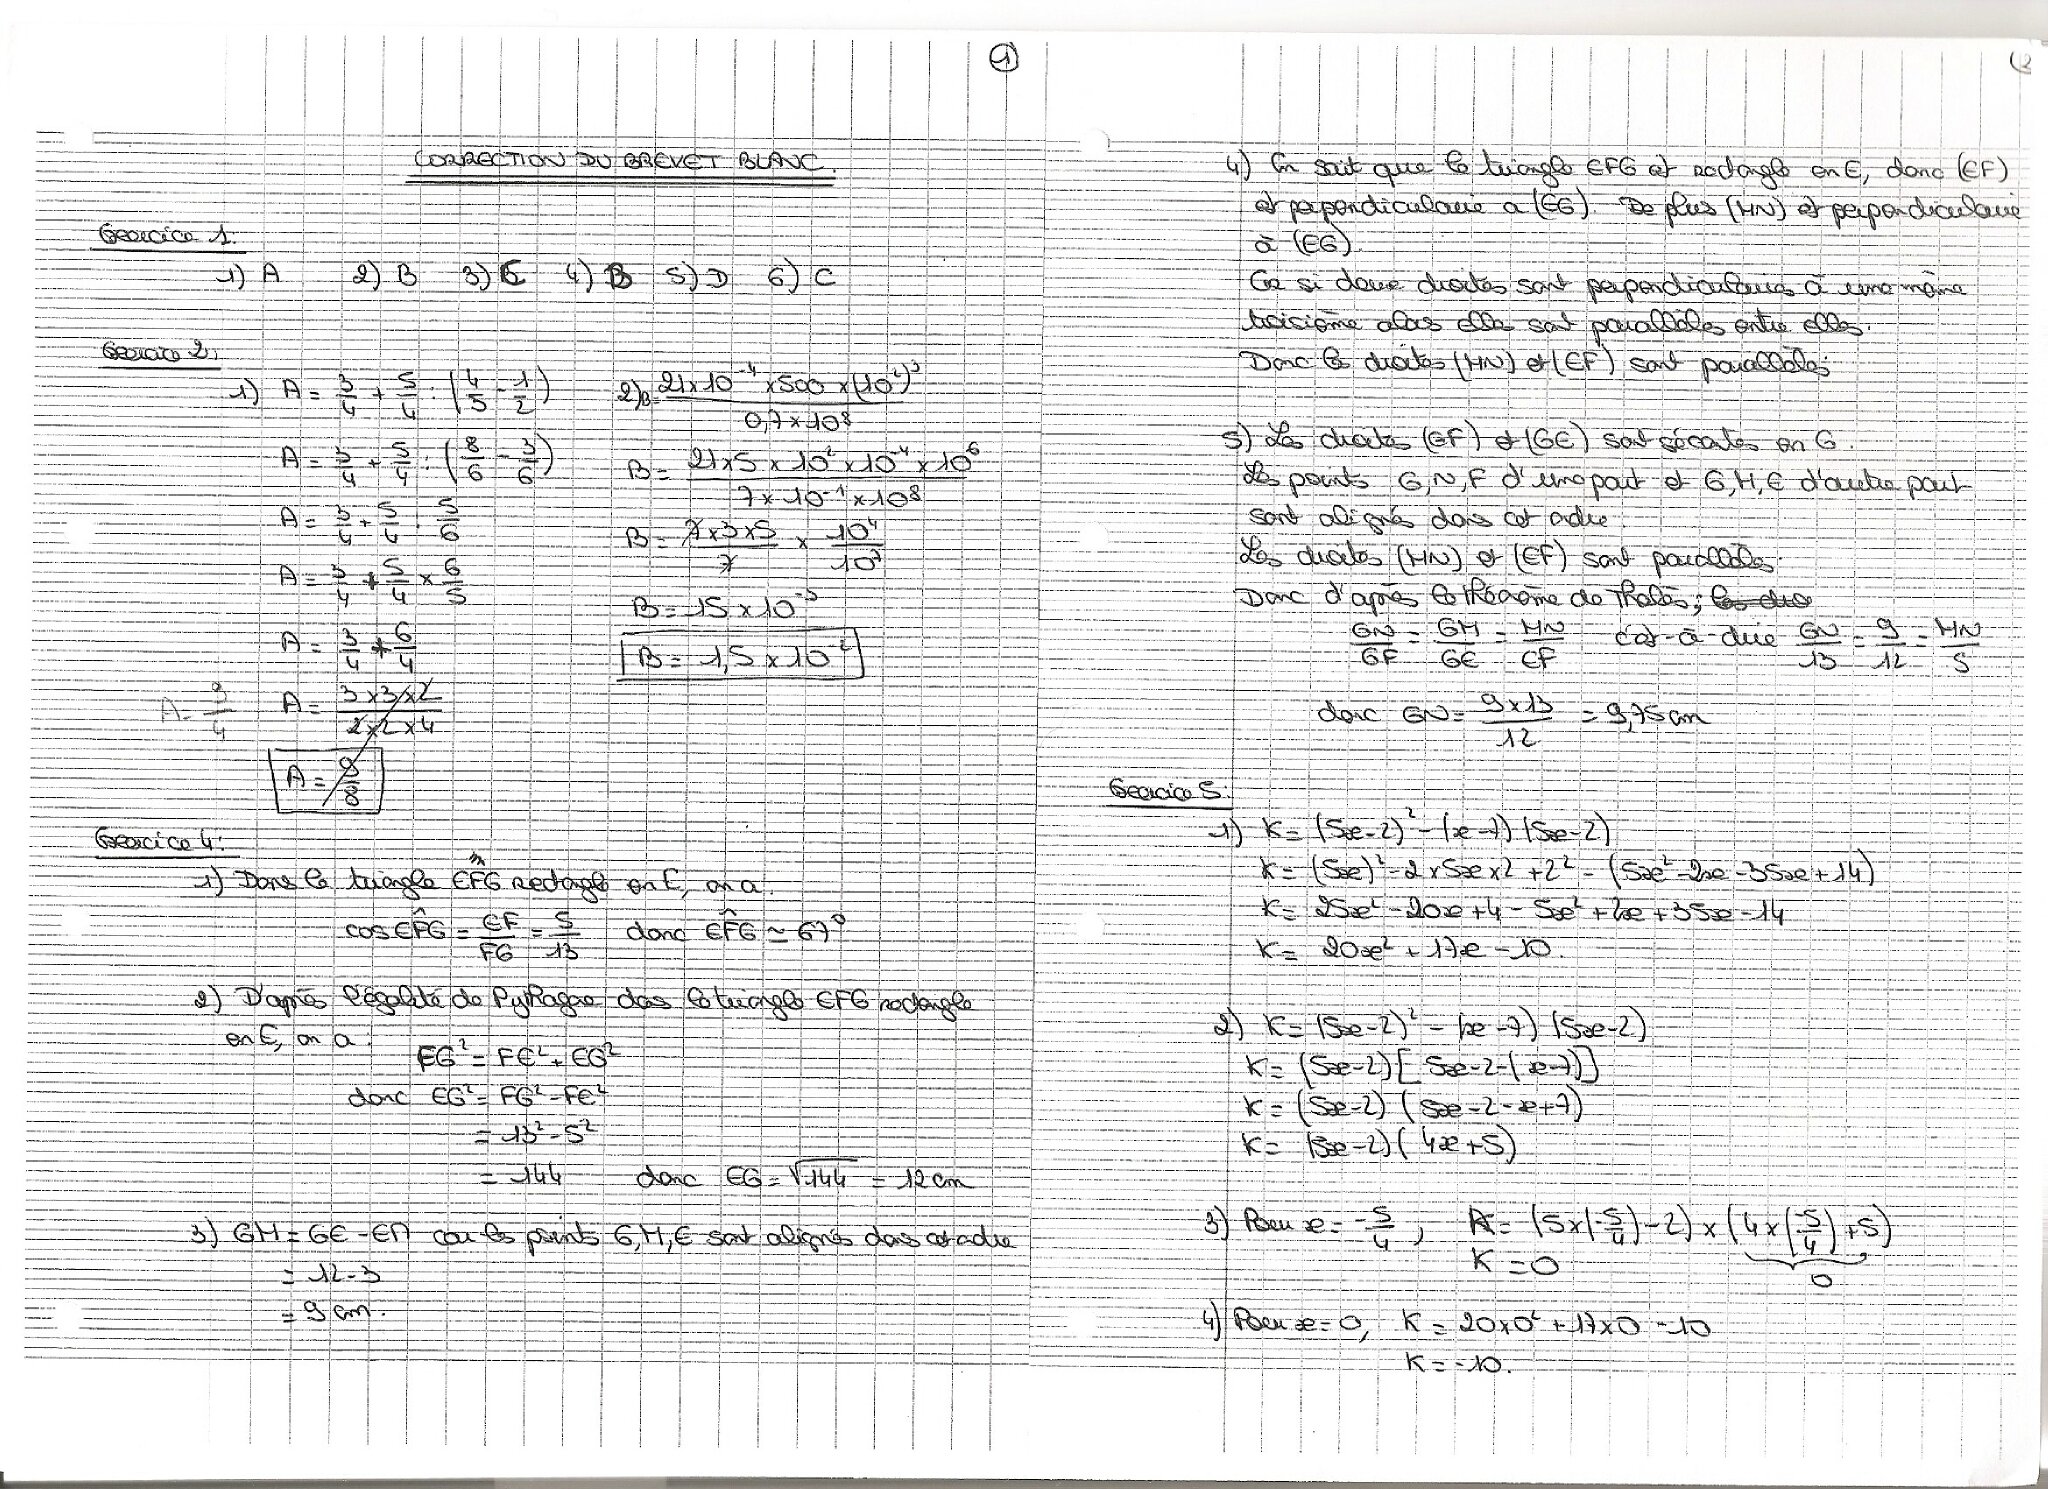 ①
CORRECTION DU BREVET BLANC.
Exercice 1.
1) A 2) B 3) C 4) B 5) D 6) C
Exercice 2:
1) A = 3/4 + 5/4 : (4/5 - 1/2)
A = 3/4 + 5/4 : (8/6 - 3/6)
A = 3/4 + 5/4 : 5/6
A = 3/4 + 5/4 × 6/5
A = 3/4 + 6/4
A = 9/4 A = 3×3×2 / 2×2×4
A = 9/8
2) B = 21×10^-4 × 500 × (10^2)^3 / 0,7×10^8
B = 21×5×10^2×10^-4×10^6 / 7×10^-1×10^8
B = 7×3×5 / 7 × 10^4 / 10^7
B = 15×10^-3
B = 1,5×10^-2
Exercice 4:
1) Dans le triangle EFG rectangle en E, on a.
cos EFG = EF/FG = 5/13 donc EFG ≃ 67°
2) D'après l'égalité de Pythagore dans le triangle EFG rectangle
en E, on a.
FG² = FE² + EG²
donc EG² = FG² - FE²
= 13² - 5²
= 144 donc EG = √144 = 12 cm
3) GM = GE - EM car les points G, M, E sont alignés dans cet ordre
= 12 - 3
= 9 cm.
(2
4) On sait que le triangle EFG est rectangle en E, donc (EF)
est perpendiculaire a (EG). De plus (MN) est perpendiculaire
à (EG).
Or si deux droites sont perpendiculaires à une même
troisième alors elles sont parallèles entre elles.
Donc les droites (MN) et (EF) sont parallèles.
5) Les droites (GF) et (GE) sont sécantes en G.
Les points G, N, F d'une part et G, M, E d'autre part
sont alignés dans cet ordre.
Les droites (MN) et (EF) sont parallèles.
Donc d'après le théorème de Thalès, les dro
GN/GF = GM/GE = MN/EF c'est-à-dire GN/13 = 9/12 = MN/5
donc GN = 9×13 / 12 = 9,75 cm
Exercice 5.
1) K = (5x-2)² - (x-7)(5x-2)
K = (5x)² - 2×5x×2 + 2² - (5x² - 2x - 35x + 14)
K = 25x² - 20x + 4 - 5x² + 2x + 35x - 14
K = 20x² + 17x - 10.
2) K = (5x-2)² - (x-7)(5x-2)
K = (5x-2)[5x-2-(x-7)]
K = (5x-2)(5x-2-x+7)
K = (5x-2)(4x+5)
3) Pour x = -5/4, K = (5×(-5/4)-2)×(4×(-5/4)+5)
K = 0 0
4) Pour x = 0, K = 20×0² + 17×0 - 10
K = -10.